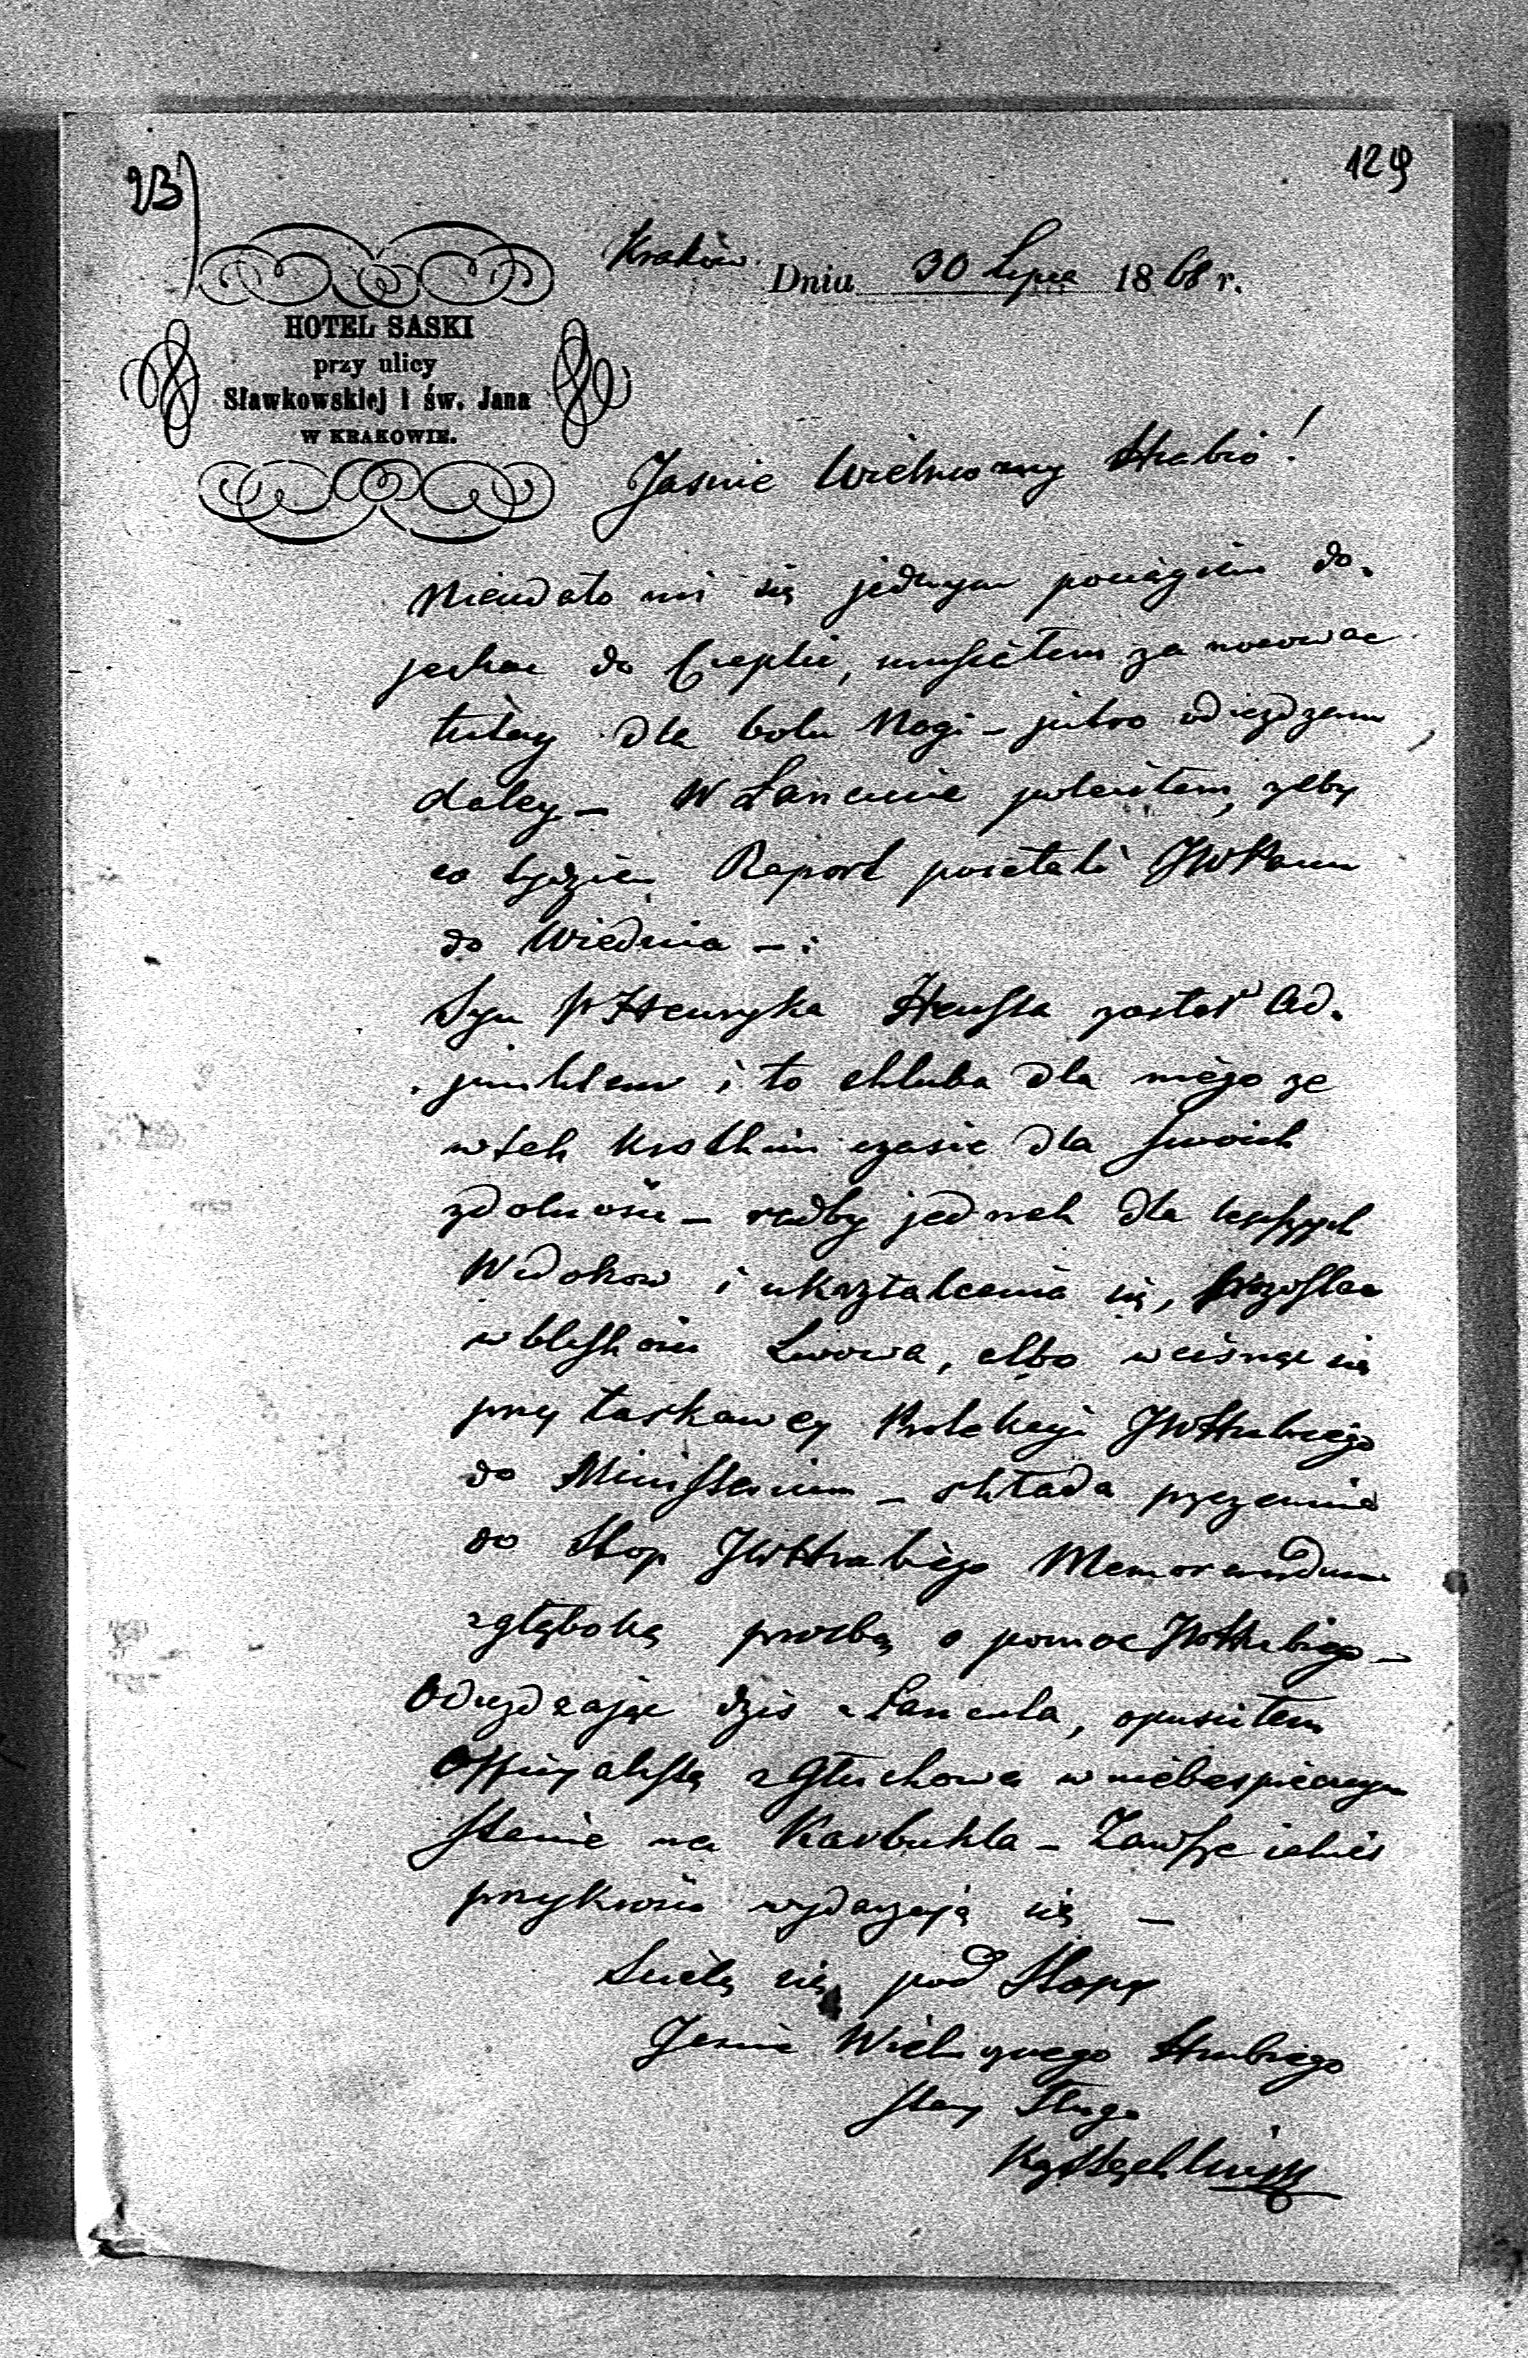 23)
129
Kraków Dnia 30 Lipca 1868 r.
HOTEL SASKI
przy ulicy
Sławkowskiej i św. Jana
W KRAKOWIE.
Jasnie Wielmozny Hrabio!
Nieudało mi się jednym pociągiem do-
jechac do Cieplic, musiałem zanocowac
tutay dla bolu Nogi – jutro odiezdzam
daley – W Łancucie poleciłem, zeby
co tydzien Raport posełali JWPanu
do Wiednia –
Syn P Henryka został Ad-
junktem i to chluba dla niego ze
wtak krotkim czasie dla swoich
zdolnosci – radby jednak dla lepszych
Widokow i ukształcenia się, pozostac
w bliskosci Lwowa, albo wcisnąc się
przy łaskawey Protekcyi JWHrabiego
do Ministerium – składa przezemnie
do Stop JWHrabiego Memorandum
zgłęboką prosbą o pomoc JWHrabiego –
Odiezdzając dzis z Łancuta, opusciłem
Officyalistę z Głuchowa w niebespiecznym
stanie na Karbukla – Zawsze iakies
przykrosci wydarzają się –
Scielę się pod Stopy
Jasnie Wielmoznego Hrabiego
stary Sługa